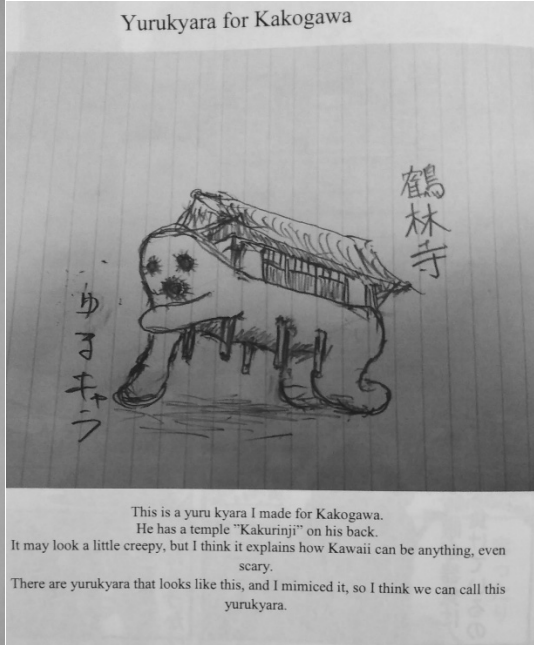 Yurukyara for Kakogawa
鶴林寺
ゆるキャラ
This is a yuru kyara I made for Kakogawa.
He has a temple ”Kakurinji” on his back.
It may look a little creepy, but I think it explains how Kawaii can be anything, even
scary.
There are yurukyara that looks like this, and I mimiced it, so I think we can call this
yurukyara.